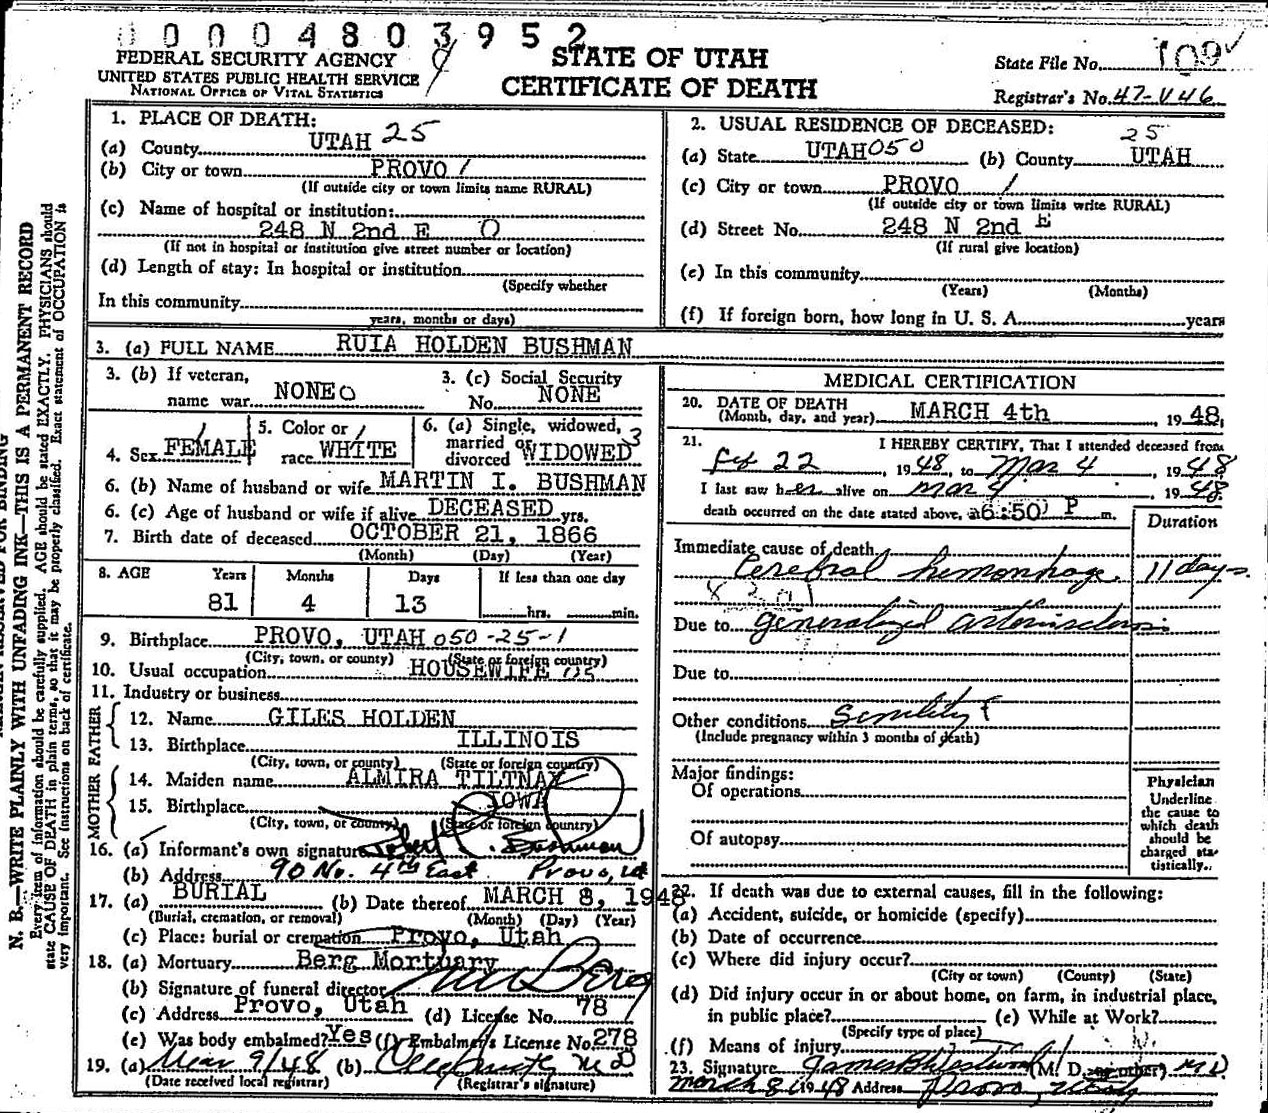 0000480 3952
FEDERAL SECURITY AGENCY
UNITED STATES PUBLIC HEALTH SERVICE
NATIONAL OFFICE OF VITAL STATISTICS
STATE OF UTAH
CERTIFICATE OF DEATH
State File No. 109
Registrar's No. 47-V46
1. PLACE OF DEATH:
(a) County UTAH 25
(b) City or town PROVO 1
(If outside city or town limits name RURAL)
(c) Name of hospital or institution:
248 N 2nd E O
(If not in hospital or institution give street number or location)
(d) Length of stay: In hospital or institution
(Specify whether
In this community
years, months or days)
2. USUAL RESIDENCE OF DECEASED:
25
(a) State UTAH 050 (b) County UTAH
(c) City or town PROVO 1
(If outside city or town limits write RURAL)
(d) Street No. 248 N 2nd E
(If rural give location)
(e) In this community
(Years) (Months)
(f) If foreign born, how long in U. S. A. years
3. (a) FULL NAME RUIA HOLDEN BUSHMAN
3. (b) If veteran,
name war NONE O
3. (c) Social Security
No. NONE
4. Sex FEMALE
5. Color or
race WHITE
6. (a) Single, widowed,
married or
divorced WIDOWED 3
6. (b) Name of husband or wife MARTIN I. BUSHMAN
6. (c) Age of husband or wife if alive DECEASED yrs.
7. Birth date of deceased OCTOBER 21, 1866
(Month) (Day) (Year)
8. AGE Years Months Days If less than one day
81 4 13 hrs. min.
9. Birthplace PROVO, UTAH 050-25-1
(City, town, or county) (State or foreign country)
10. Usual occupation HOUSEWIFE
11. Industry or business
FATHER
12. Name GILES HOLDEN
13. Birthplace ILLINOIS
(City, town, or county) (State or foreign country)
MOTHER
14. Maiden name ALMIRA TILTNAY
15. Birthplace IOWA
(City, town, or county) (State or foreign country)
16. (a) Informant's own signature Robert Bushman
(b) Address 90 No. 4th East Provo, Ut
17. (a) BURIAL (b) Date thereof MARCH 8, 1948
(Burial, cremation, or removal) (Month) (Day) (Year)
(c) Place: burial or cremation Provo, Utah
18. (a) Mortuary Berg Mortuary
(b) Signature of funeral director Berg
(c) Address Provo, Utah (d) License No. 78
(e) Was body embalmed? Yes (f) Embalmer's License No. 278
19. (a) Mar 9/48 (b) M D
(Date received local registrar) (Registrar's signature)
MEDICAL CERTIFICATION
20. DATE OF DEATH
(Month, day, and year) MARCH 4th, 1948
21. I HEREBY CERTIFY, That I attended deceased from
Feb 22, 1948, to Mar 4, 1948
I last saw her alive on Mar 4, 1948
death occurred on the date stated above, at 6:50 P m.
Duration
Immediate cause of death
Cerebral hemorrhage. 11 days.
Due to generalized arteriosclerosis
Due to
Other conditions Senility
(Include pregnancy within 3 months of death)
Major findings:
Of operations
Of autopsy
Physician
Underline
the cause to
which death
should be
charged sta-
tistically.
22. If death was due to external causes, fill in the following:
(a) Accident, suicide, or homicide (specify)
(b) Date of occurrence
(c) Where did injury occur?
(City or town) (County) (State)
(d) Did injury occur in or about home, on farm, in industrial place,
in public place? (e) While at Work?
(Specify type of place)
(f) Means of injury
23. Signature James (M. D. or other) M D
March 8 1948 Address Provo, Utah
N. B.—WRITE PLAINLY WITH UNFADING INK—THIS IS A PERMANENT RECORD
Every item of information should be carefully supplied. AGE should be stated EXACTLY. PHYSICIANS should
state CAUSE OF DEATH in plain terms, so that it may be properly classified. Exact statement of OCCUPATION is
very important. See instructions on back of certificate.